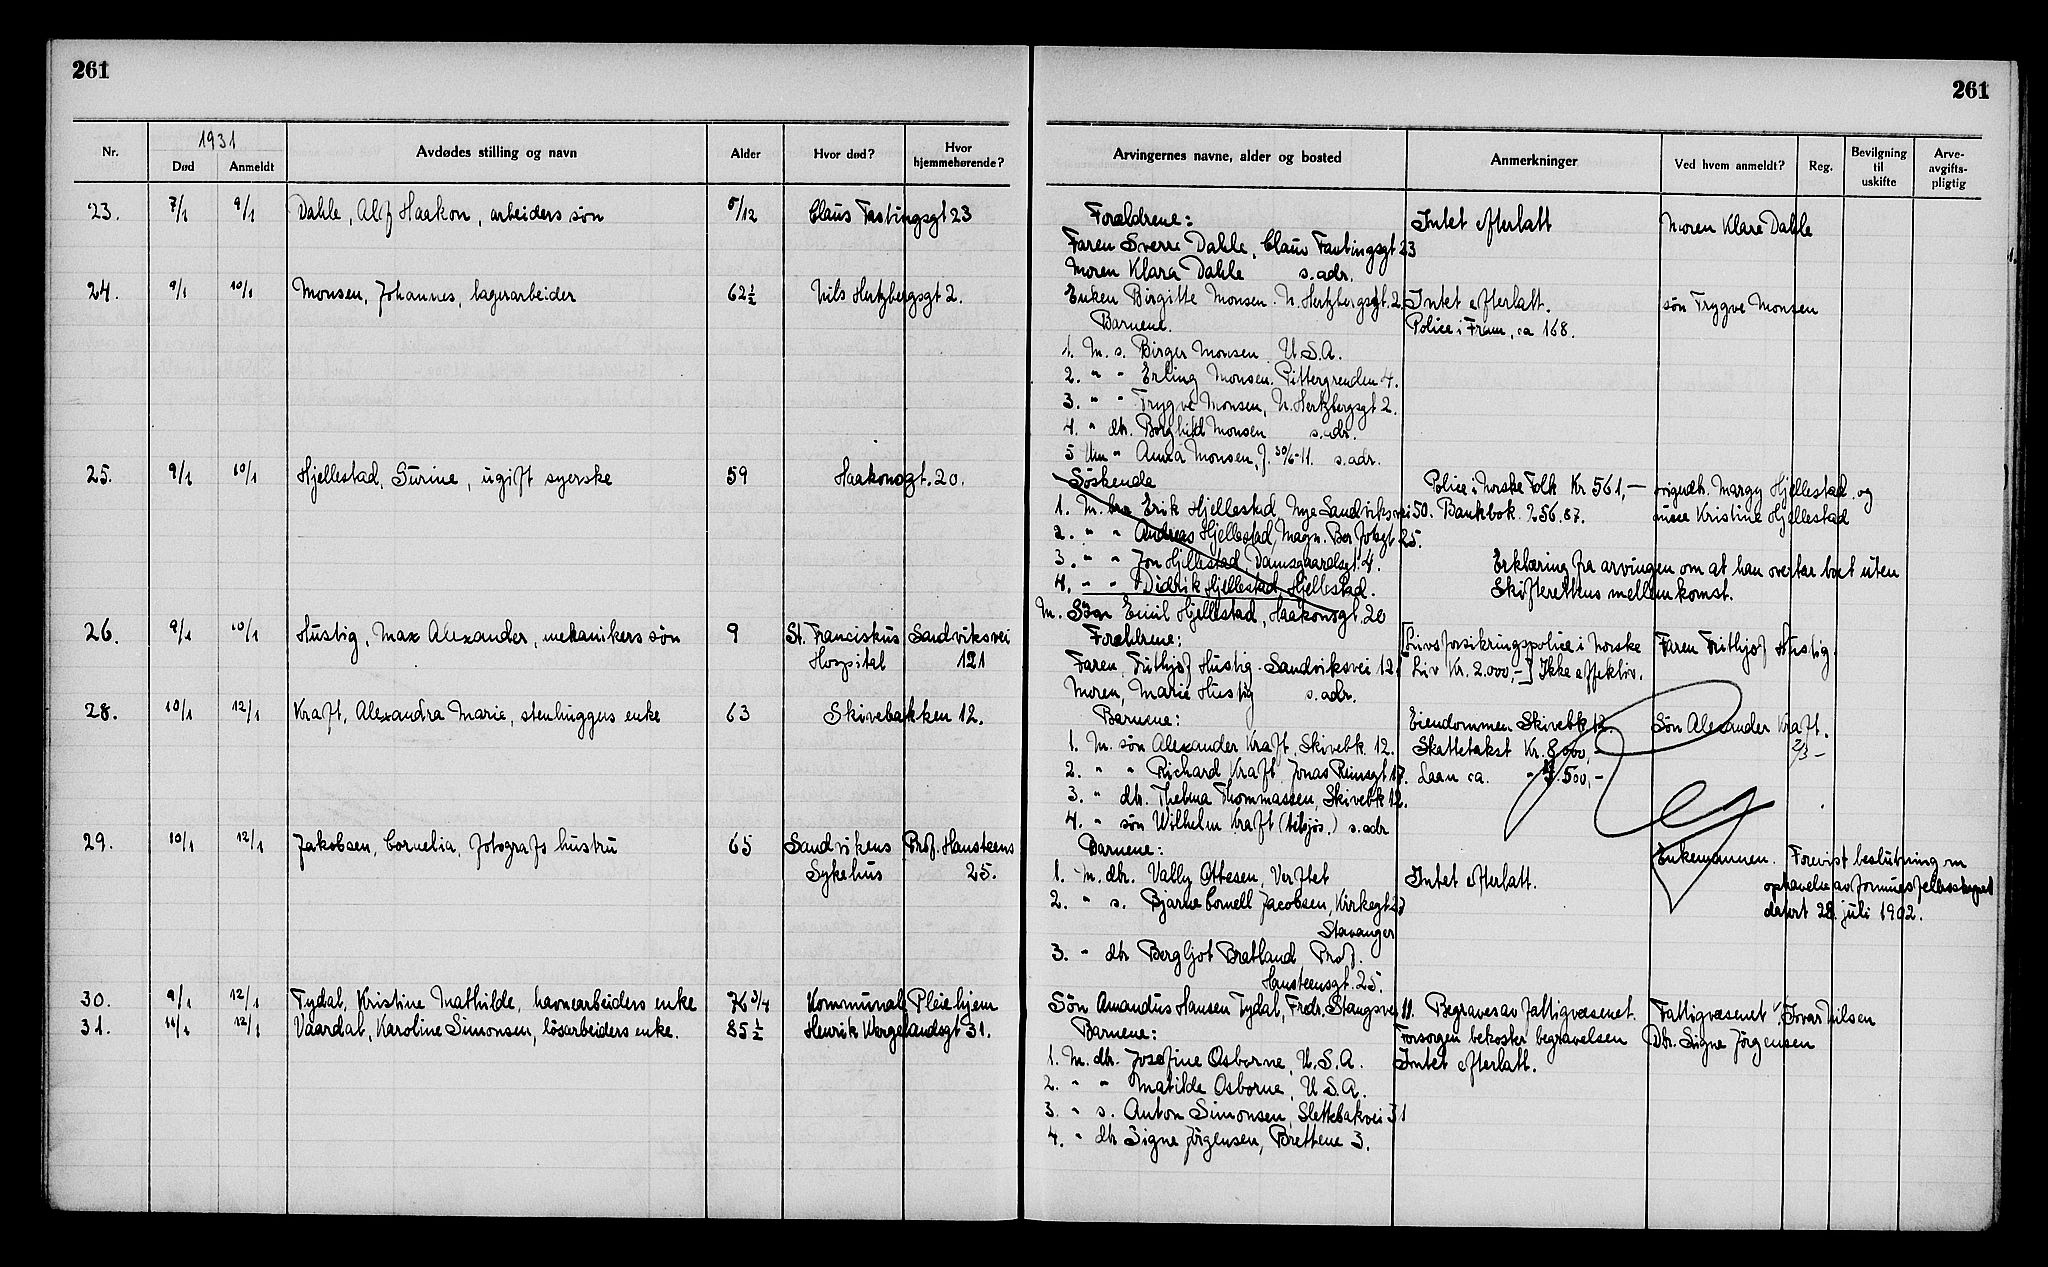 261
261
1931
Nr. Død Anmeldt Avdødes stilling og navn Alder Hvor død? Hvor hjemmehørende? Arvingernes navne, alder og bosted Anmerkninger Ved hvem anmeldt? Reg. Bevilgning til uskifte Arve-avgifts-pligtig
23. 7/1 9/1 Dahle, Alf Haakon, arbeiders søn 5/12 Claus Fastingsgt 23 Forældrene: Intet efterlatt Moren Klara Dahle
Faren Sverre Dahle, Claus Fastingsgt 23
Moren Klara Dahle s. adr.
24. 9/1 10/1 Monsen, Johannes, lagerarbeider 62½ Nils Hertzbergsgt 2. Enken Birgitte Monsen. N. Hertzbergsgt. 2. Intet efterlatt. søn Trygve Monsen
Barnene. Police i Fram, ca 168.
1. M. s. Birger Monsen U.S.A.
2. " " Erling Monsen. Pittergrenden 4.
3. " " Trygve Monsen, N. Hertzbergsgt 2.
4. " dtr. Borghild Monsen s. adr.
5 Um " Anna Monsen, f. 30/6-11. s. adr.
25. 9/1 10/1 Hjellestad, Surine, ugift syerske 59 Haakonsgt. 20. Søskende Police i Norske Folk Kr 561,- svigerdtr. Margy Hjellestad og
1. M. bro Erik Hjellestad Nye Sandviksvei 50. Bankbok. 256.87. niece Kristine Hjellestad
2. " " Andreas Hjellestad, Magn. Barfotsgt 25.
3. " " Jon Hjellestad, Damsgaardsgt. 4. Erklæring fra arvingen om at han overtar boet uten
4. " " Didrik Hjellestad, Hjellestad. Skifterettens mellemkomst.
M. Søn Emil Hjellestad, Haakonsgt. 20
26. 9/1 10/1 Hustig, Max Alexander, mekanikers søn 9 St. Franciskus Hospital Sandviksvei 121 Forældrene: [Livsforsikringspolice i Norske Faren Frithjof Hustig.
Faren, Frithjof Hustig. Sandviksvei 121 Liv Kr. 2.000,-] Ikke effektiv.
Moren, Marie Hustig s. adr.
28. 10/1 12/1 Kraft, Alexandra Marie, stenhuggers enke 63 Skivebakken 12. Barnene: Eiendommen Skivebk 12. Søn Alexander Kraft.
1. M. søn Alexander Kraft, Skivebk. 12. Skattetakst Kr. 8.000,- 2/3 -
2. " " Richard Kraft Jonas Reinsgt 17. Laan ca. " 500,-
3. " dtr. Thelma Thommassen, Skivebk 12.
4. " søn Wilhelm Kraft (tilsjøs.) s. adr
29. 10/1 12/1 Jakobsen, Cornelia, fotografs hustru 65 Sandvikens Sykehus Prof. Hansteens 25. Barnene: Enkemannen. Forevist beslutning om
1. M. dtr. Vally Ottesen, Verftet Intet efterlatt. ophævelse av formuesfellesskapet
2. " s. Bjarne Cornell Jacobsen, Kirkegt 27 datert 28. juli 1902.
Stavanger
3. " dtr Bergljot Bratland Prof.
Hansteensgt. 25.
30. 9/1 12/1 Tydal, Kristine Mathilde, havnearbeiders enke 76 3/4 Kommunal Pleiehjem Søn Amandus Hansen Tydal, Fredr. Stangsvei 11. Begraves av fattigvæsenet. Fattigvæsenet v. Ivar Nilsen
31. 11/1 12/1 Vaardal, Karoline Simonsen, løsarbeiders enke. 85½ Henrik Wergelandsgt 31. Barnene: Forsorgen bekoster begravelsen Dtr. Signe Jörgensen
1. M. dtr. Josefine Osborne, U.S.A. Intet efterlatt.
2. " " Matilde Osborne, U.S.A.
3. " s. Anton Simonsen, Slettebakvei 31
4. " dtr Signe Jörgensen, Brettene 3.